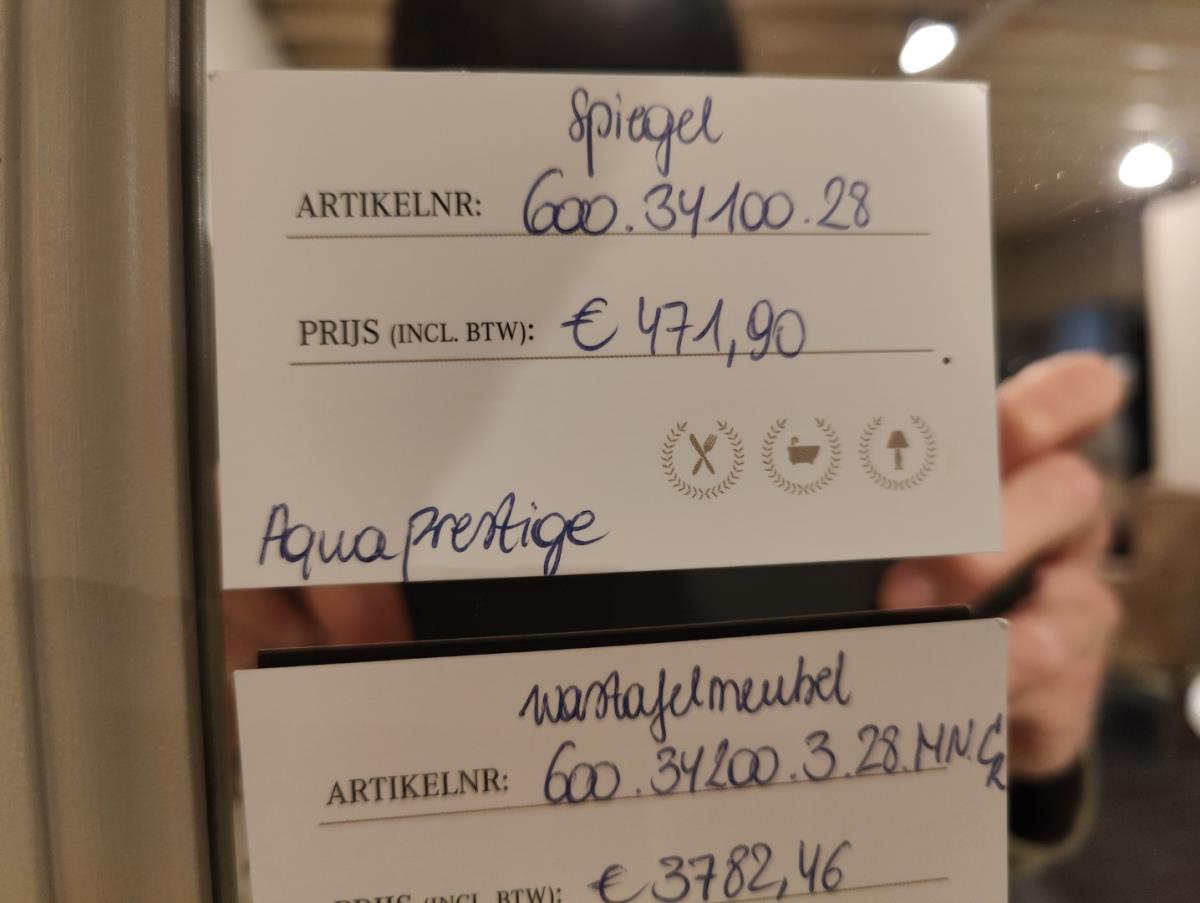 Spiegel
ARTIKELNR: 600.34100.28
PRIJS (INCL. BTW): € 471,90
Aquaprestige
wastafelmeubel
ARTIKELNR: 600.34200.3.28.MN.CR
PRIJS (INCL. BTW): € 3782,46